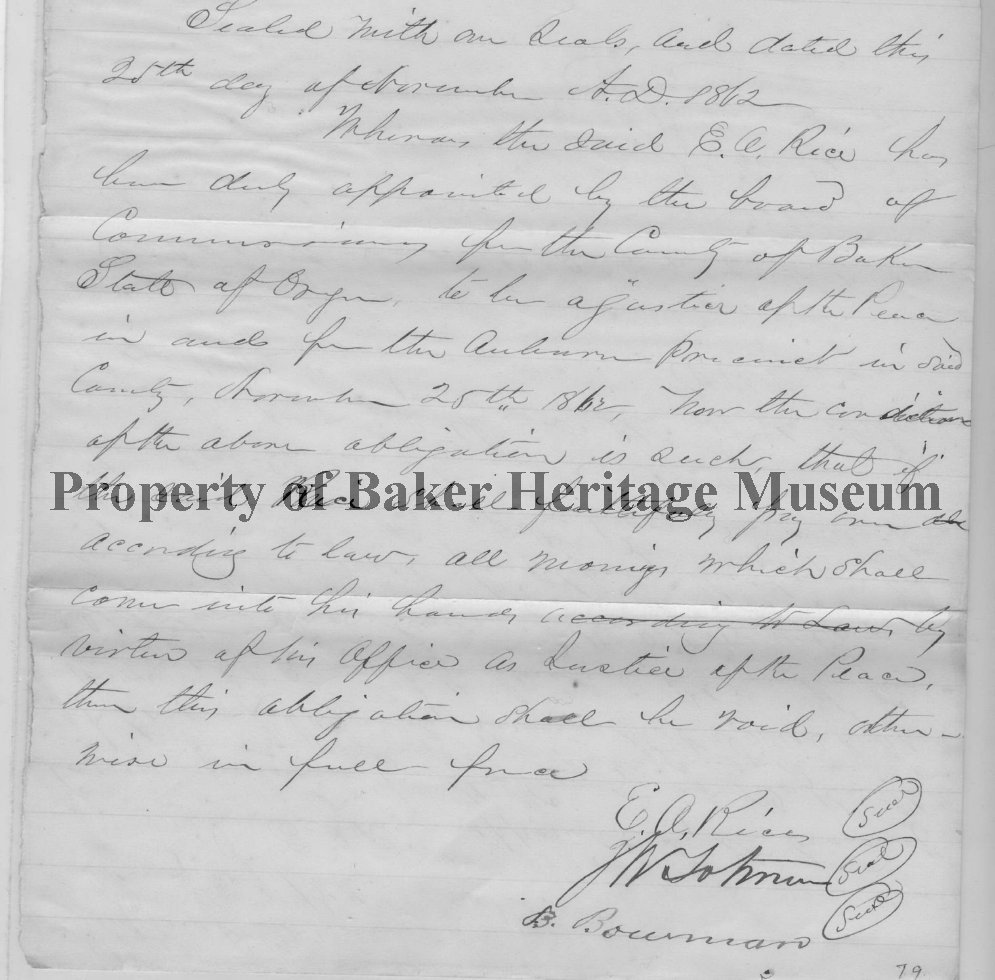 Sealed with our Seals, and dated this
25th day of November A.D. 1862
Whereas the said E. A. Rice has
been duly appointed by the board of
Commissioners for the County of Baker
State of Oregon, to be a Justice of the Peace
in and for the Auburn Precinct in said
County, November 25th 1862, Now the condition
of the above obligation is such, that if
Property of Baker Heritage Museum
the said Rice shall faithfully pay over
according to law, all moneys which shall
come into his hands according to Law by
virtue of his Office as Justice of the Peace,
then this obligation shall be void, other-
wise in full force
E. A. Rice Seal
J W Johnson Seal
B. Bowman Seal
79